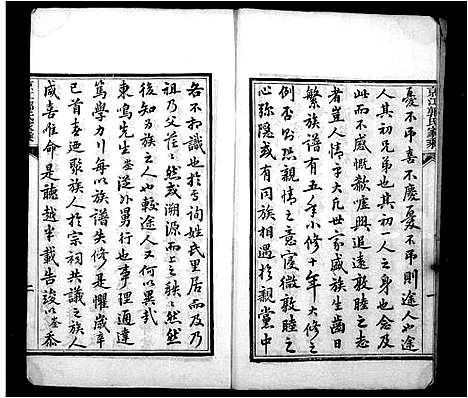 京江郭氏家乘
憂不弔喜不慶憂不弔則途人也途
人其初兄弟也其初一人之身也念及
此而不感慨欷歔興追遠敦睦之志
者豈人情乎大凡世家盛族生齒日
繁族譜有五年小修十年大修之
例否公然親情之意寖微敦睦之
心弥隱或有同族相於親黨中
各不相識也於焉詢姓氏里居而及乃
祖乃父茫茫然或溯源而上之昧昧然
後知為族之人也較途人又何以異哉
東鳴先生從外男行也事理通
篤學力行每以族譜失修是懼歲辛
巳首春迺聚族人於宗祠共議之族人
咸喜唯命是聽越半載告竣以余忝
二